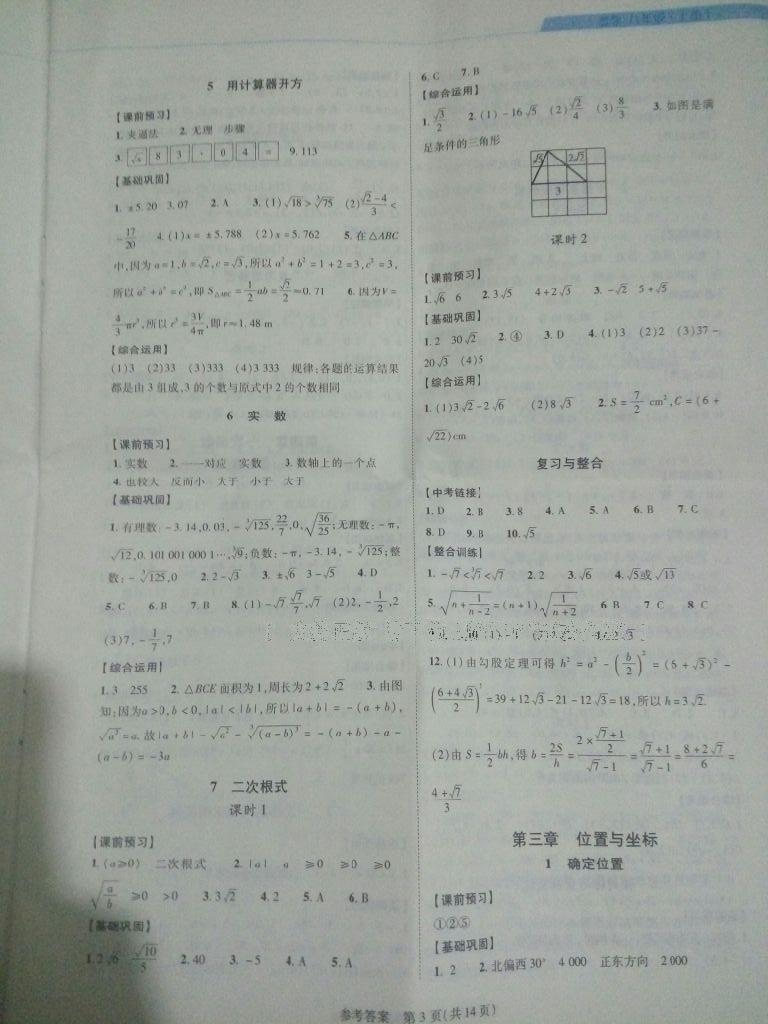 5 用计算器开方
【课前预习】
1. 夹逼法 2. 无理 步骤
3. √ 8 3 · 0 4 = 9.113
【基础巩固】
1. ±5.20 3.07 2. A 3. (1)√18>∛75 (2)(√2-4)/3<
-17/20 4. (1)x=±5.788 (2)x=5.762 5. 在△ABC
中,因为a=1,b=√2,c=√3,所以a²+b²=1+2=3,c²=3,
所以a²+b²=c²,即S△ABC=1/2ab=√2/2≈0.71 6. 因为V=
4/3πr³,所以r³=3V/4π,即r≈1.48 m
【综合运用】
(1)3 (2)33 (3)333 (4)3 333 规律:各题的运算结果
都是由3组成,3的个数与原式中2的个数相同
6 实 数
【课前预习】
1. 实数 2. 一一对应 实数 3. 数轴上的一个点
4. 也较大 反而小 大于 小于 大于
【基础巩固】
1. 有理数:-3.14,0.03,-∛125,22/7,0,√(36/25);无理数:-π,
√12,0.101 001 000 1…,∛9;负数:-π,-3.14,-∛125;整
数:-∛125,0 2. 2-√3 3. ±√6 3-√5 4. D
5. C 6. B 7. B 8. (1)-√7 √7/7,√7 (2)2,-1/2,2
(3)7,-1/7,7
【综合运用】
1. 3 255 2. △BCE面积为1,周长为2+2√2 3. 由图
知:因为a>0,b<0,|a|<|b|,所以|a+b|=-(a+b),
√a²=a.故|a+b|-√a²-∛(a-b)³=-(a+b)-a-
(a-b)=-3a
7 二次根式
课时1
【课前预习】
1. (a≥0) 二次根式 2. |a| a ≥0 ≥0 ≥0
√(a/b) ≥0 >0 3. 3√2 4. 2 5. A 6. B
【基础巩固】
1. 2√6 √10/5 2. 40 3. -5 4. A 5. A
6. C 7. B
【综合运用】
1. √3/2 2. (1)-16√5 (2)√2/4 (3)8/3 3. 如图是满
足条件的三角形
√5 2√2
3
课时2
【课前预习】
1. √6 6 2. 3√5 4+2√3 3. -√2 5+√5
【基础巩固】
1. 2 30√2 2. ④ 3. D 4. (1)3 (2)2 (3)37-
20√3 (4)5
【综合运用】
1. (1)3√2-2√6 (2)8√3 2. S=7/2 cm²,C=(6+
√22)cm
复习与整合
【中考链接】
1. D 2. B 3. 8 4. A 5. A 6. B 7. C
8. D 9. B 10. √5
【整合训练】
1. -√7<∛7<√7 2. 2 3. √6 4. √5或√13
5. √(n+1/(n+2))=(n+1)√(1/(n+2)) 6 B 7 C 8 C
12. (1)由勾股定理可得h²=a²-(b/2)²=(6+√3)²-
((6+4√3)/2)²=39+12√3-21-12√3=18,所以h=3√2.
(2)由S=1/2bh,得b=2S/h=(2×(√7+1)/2)/(√7-1)=(√7+1)/(√7-1)=(8+2√7)/6=
(4+√7)/3
第三章 位置与坐标
1 确定位置
【课前预习】
①②⑤
【基础巩固】
1. 2 2. 北偏西30° 4 000 正东方向 2 000
参考答案 第3页(共14页)